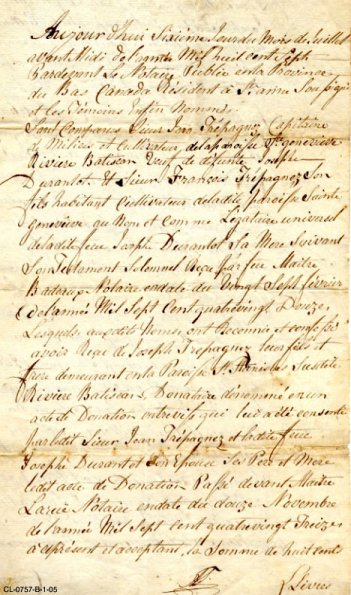 Aujourd'hui Sixième Jour du Mois de Juillet
avant Midi de l'année Mil huit cent Sept
Pardevant Le Notaire Publie en la Province
du Bas Canada Résident à Ste anne Soussigné
et les Témoins Enfin Nommés
Sont Comparus Sieur Jean Trépagnez Capitaine
de Milice et Cultivateur de la paroisse Ste genevieve
Rivière Batiscan Veuf de défunte Joseph
Durantot. Et Sieur François Trépagnez Son
fils habitant Cultivateur de ladite paroisse Sainte
genevieve au Nom et Comme Légataire universel
de ladite feue Joseph Durantot Sa Mere Suivant
Son Testament Solemnel Reçu par feu Maitre
Notaire en date du Vingt Sept février
de l'année Mil Sept Cent quatrevingt Douze.
Lesquels auxdits Noms, ont Reconnu et confessé
avoir Reçu de Joseph Trépagnez leur fils et
frere demeurant en la Paroisse St Stanislas Susdite
Rivière Batiscan Donataire dénommé en un
acte de Donation entrevifs qui lui a été consenti
par ledit Sieur Jean Trépagnez et ladite feue
Joseph Durantot Son Epouse Ses Pere et Mere
Ledit acte de Donation Passé devant Maitre
Notaire en date du douze Novembre
de l'année Mil Sept Cent quatrevingt Treize
à présent et acceptant, la Somme de huit cents
Livres
CL-0757-B-1-05